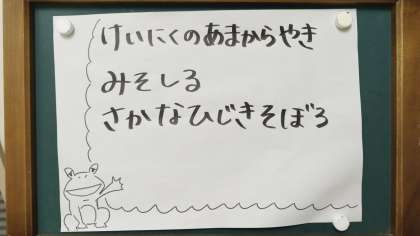 けいにくのあまからやき
みそしる
さかなひじきそぼろ